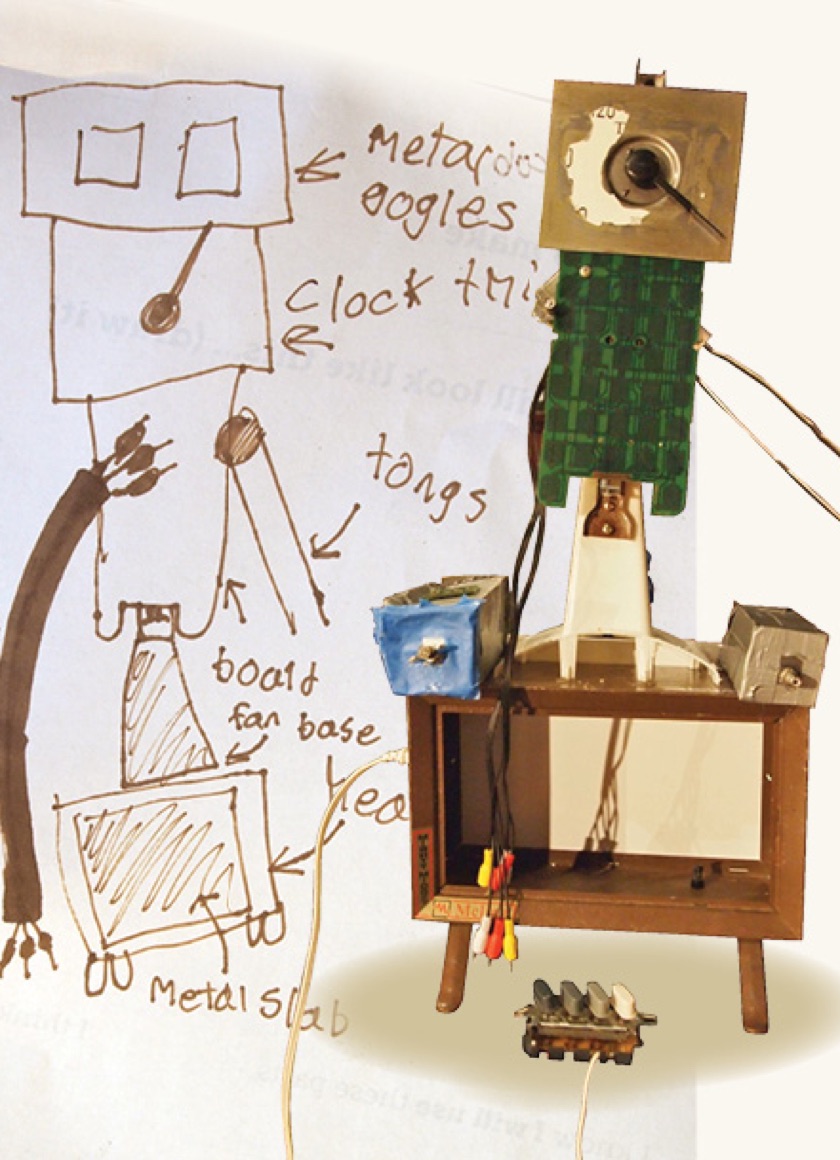 metal
gogles
Clock tmi
tongs
board
fan base
hea
Metal slab
make
ill look like this... (draw it)
I know I will use these parts
I think